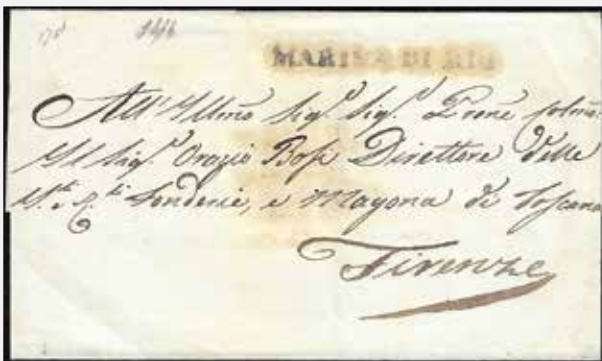 MARINA DI RIO
All' Illmo Sig.r Sig.r Prone Colmo
Il Sig.r Orazio Bosi Direttore delle
Fonderie, e Magona di Toscana
Firenze